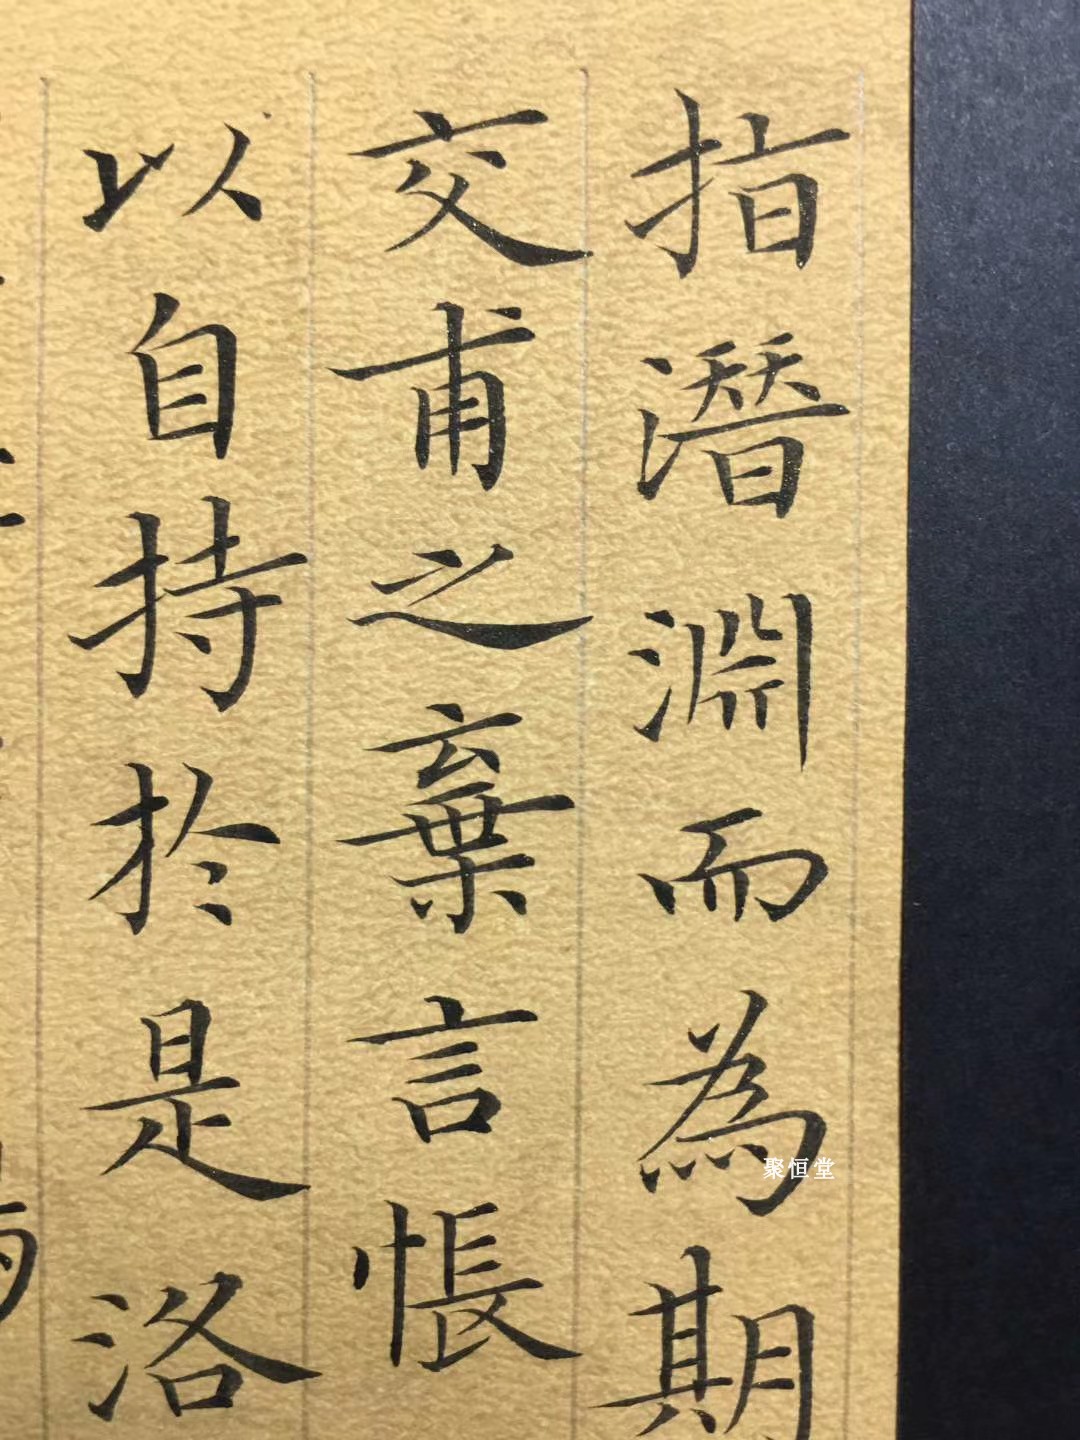 指潛淵而為期
交甫之棄言悵
以自持於是洛
聚恒堂